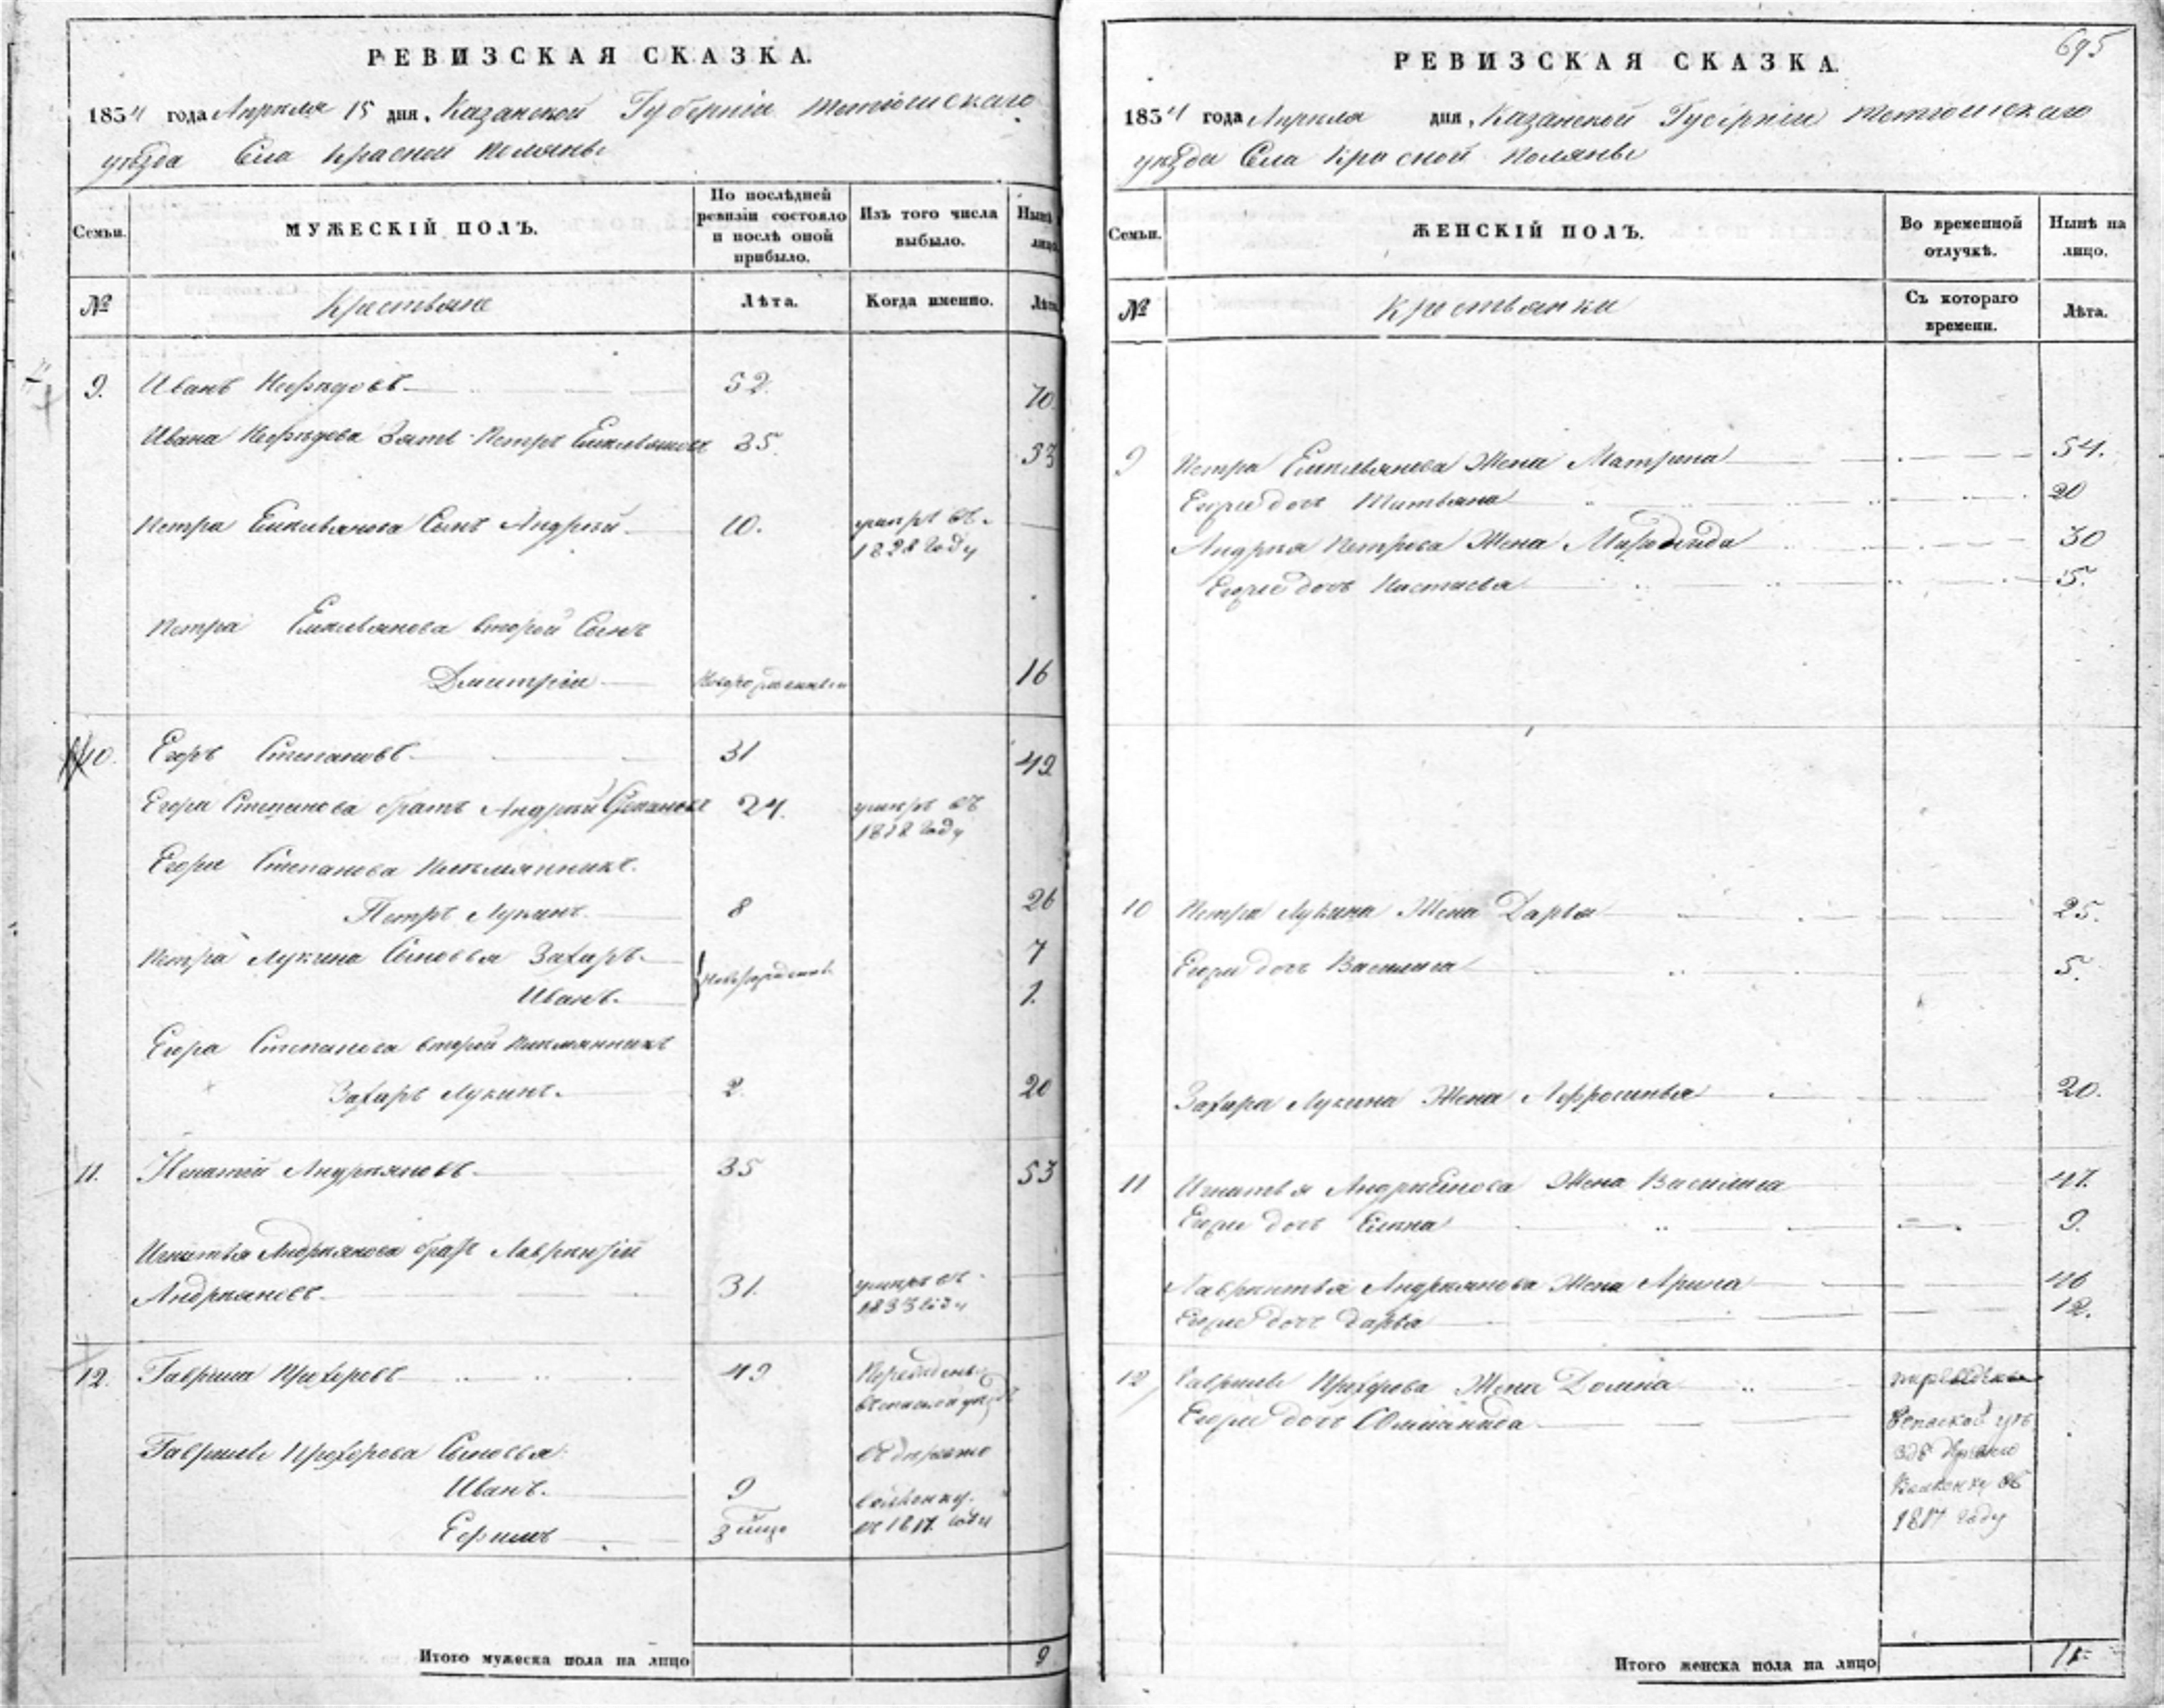 РЕВИЗСКАЯ СКАЗКА.
1834 года Апреля 15 дня, Казанской Губерніи Тетюшскаго
уѣзда Села Красной Поляны
Семьи.
МУЖЕСКІЙ ПОЛЪ.
По послѣдней ревизіи состояло и послѣ оной прибыло.
Изъ того числа выбыло.
Нынѣ лицо
№
Крестьяне
Лѣта.
Когда именно.
Лѣта
9. Иванъ Нефедовъ 52. 70.
Ивана Нефедова Зять Петръ Емельяновъ 35. 53
Петра Емельянова Сынъ Андрей 10. умеръ въ
1828 году
Петра Емельянова второй Сынъ
Дмитрій новорожденный 16
10. Егоръ Степановъ 31 49.
Егора Степанова братъ Андрей Степановъ 24. умеръ въ
1828 году
Егора Степанова племянникъ
Петръ Лукинъ 8 26
Петра Лукина Сыновья Захаръ 7
новорожденные
Иванъ 1.
Егора Степанова второй племянникъ
Захаръ Лукинъ 2. 20
11. Игнатій Андреяновъ 35 53
Игнатья Андреянова братъ Лаврентій
Андреяновъ 31. умеръ въ
1833 году
12. Гаврила Прохоровъ 49 Переведены
въ Спаской уѣздъ
Гаврилы Прохорова Сыновья
Иванъ 9
Ефимъ 3
въ 1817 году
Итого мужеска пола на лицо 9
РЕВИЗСКАЯ СКАЗКА.
695
1834 года Апреля дня, Казанской Губерніи Тетюшскаго
уѣзда Села Красной Поляны
Семьи.
ЖЕНСКІЙ ПОЛЪ.
Во временной отлучкѣ.
Нынѣ на лицо.
№
Крестьянки
Съ котораго времени.
Лѣта.
9 Петра Емельянова Жена Матрена 54.
Егоже дочь Татьяна 20
Андрея Петрова Жена 30
Егоже дочь Настасья 5.
10 Петра Лукина Жена Дарья 25.
Егоже дочь Василиса 5.
Захара Лукина Жена Афросинья 20.
11 Игнатья Андреянова Жена Василиса 47.
Егоже дочь Елена 9.
Лаврентья Андреянова Жена Арина 46
Егоже дочь Дарья 12.
12 Гаврилы Прохорова Жена Домна переведены
Егоже дочь Спаской уѣ
здъ
въ
1817 году
Итого женска пола на лицо